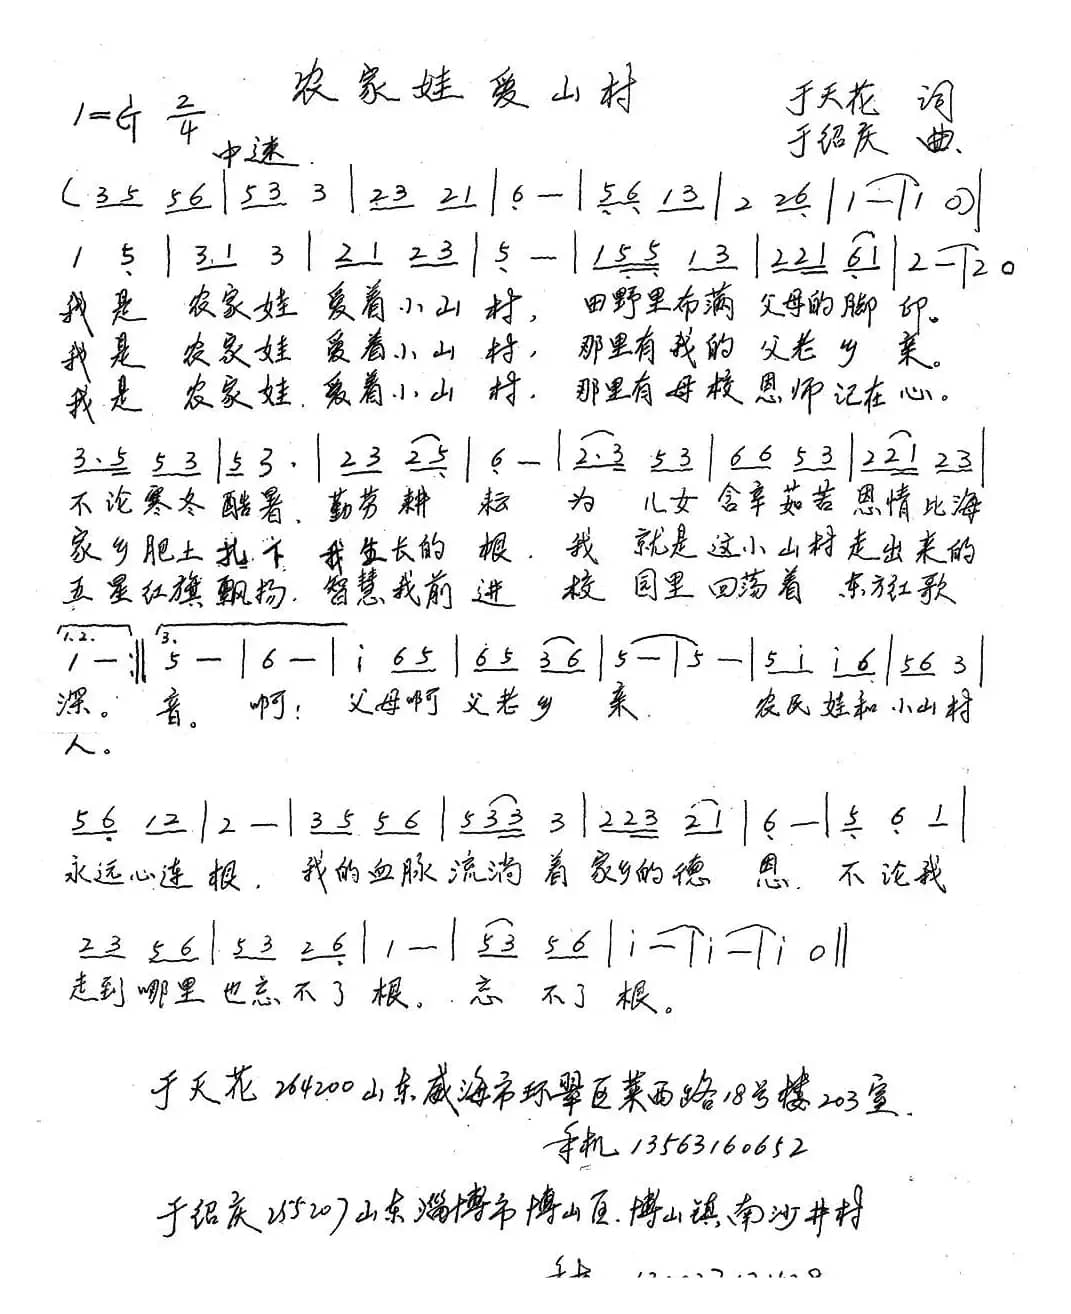 农家娃爱山村
1=G 2/4
中速
于天花 词
于绍庆 曲
(35 56|53 3|23 21|6 —|56 13|2 26|1 —|1 0)|
1 5|3.1 3|21 23|5 —|155 13|221 61|2 —|2 0
我是 农家娃 爱着小山 村， 田野里布满 父母的脚 印。
我是 农家娃 爱着小山 村， 那里有我的 父老乡 亲。
我是 农家娃 爱着小山 村， 那里有母校 恩师记在心。
3.5 53|53.|23 25|6 —|2.3 53|66 53|221 23|
不论寒冬酷暑 勤劳耕 耘 为 儿女 含辛茹苦 恩情比海
家乡肥土扎下 我生长的 根 我 就是这小山村走出来的
五星红旗飘扬 智慧我前进 校 园里回荡着 东方红歌
1.2. 3.
1 —:‖5 —|6 —|i 65|65 36|5 —|5 —|5i i6|56 3|
深。 音。 啊！ 父母啊 父老乡 亲 农民娃和小山村
人。
56 12|2 —|35 56|533 3|223 21|6 —|5 6 1|
永远心连根， 我的血脉流淌着家乡的德 恩 不论我
23 56|53 26|1 —|53 56|i —|i —|i 0‖
走到哪里也忘不了根。 忘 不了 根。
于天花 264200 山东威海市环翠区莱西路18号楼203室
手机 13563160652
于绍庆 255207 山东淄博市博山区博山镇南沙井村